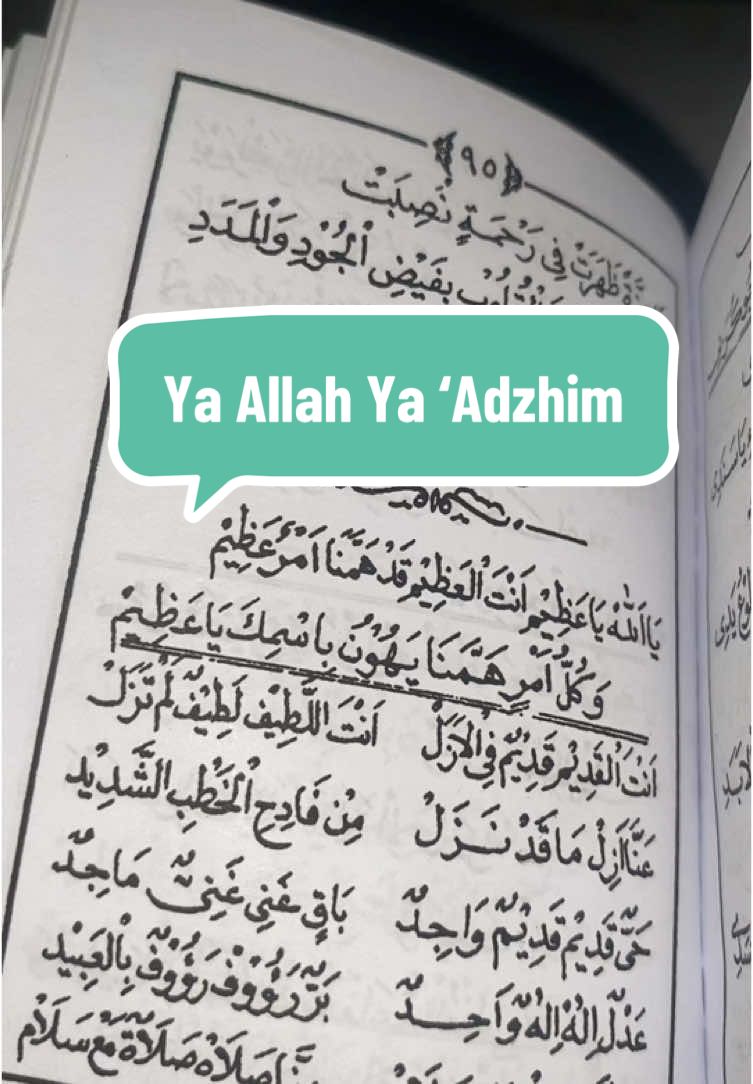 ٩٥
ظَهَرَتْ فِي رَحْمَةٍ نُصِبَتْ
بِفَيْضِ الْجُوْدِ وَالْمَدَدِ
Ya Allah Ya ‘Adzhim
يَا اَللهُ يَا عَظِيْمُ اَنْتَ الْعَظِيْمُ قَدْ هَمَّنَا اَمْرٌ عَظِيْمْ
وَكُلُّ اَمْرٍ هَمَّنَا يَهُوْنُ بِاسْمِكَ يَا عَظِيْمْ
اَنْتَ الْقَدِيْمُ قَدِيْمٌ فِي الْاَزَلْ اَنْتَ اللَّطِيْفُ لَطِيْفٌ لَمْ تَزَلْ
عَنَّا اَزِلْ مَا قَدْ نَزَلْ مِنْ فَادِحِ الْخَطْبِ الشَّدِيْدْ
حَيٌّ قَدِيْمٌ قَدِيْمٌ وَاجِدٌ بَاقٍ غَنِيٌ غَنِيٌّ مَاجِدٌ
عَدْلٌ اِلٰهٌ اِلٰهٌ وَاحِدٌ بَرٌّ رَؤُوْفٌ رَؤُوْفٌ بِالْعَبِيْدْ
صَلَاةٌ صَلَاةٌ مَعْ سَلَامْ